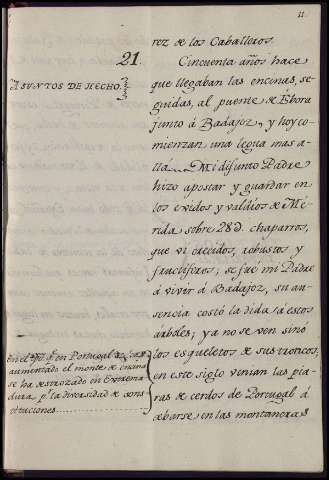 11.
rez de los Caballeros.
21.
ASUNTOS DE HECHO.
Cincuenta años hace
que llegaban las encinas, se-
guidas, al puente de Ebora
junto á Badajoz, y hoy co-
mienzan una legua mas a-
llá.... Mi difunto Padre
hizo apostar y guardar en
los exidos y valdíos de Mé-
rida sobre 28d. chaparros,
que vi crecidos, robustos y
fructíferos; se fué mi Padre
á vivir á Badajoz, su au-
sencia costó la vida á estos
árboles; ya no se ven sinó
los esqueletos de sus troncos,
en este siglo venian las pia-
ras de cerdos de Portugal á
cebarse en las montaneras
en Portugal se ha
aumentado el monte de encina
se ha destrozado en Extrema-
dura, pr. la diversidad de cons-
tituciones